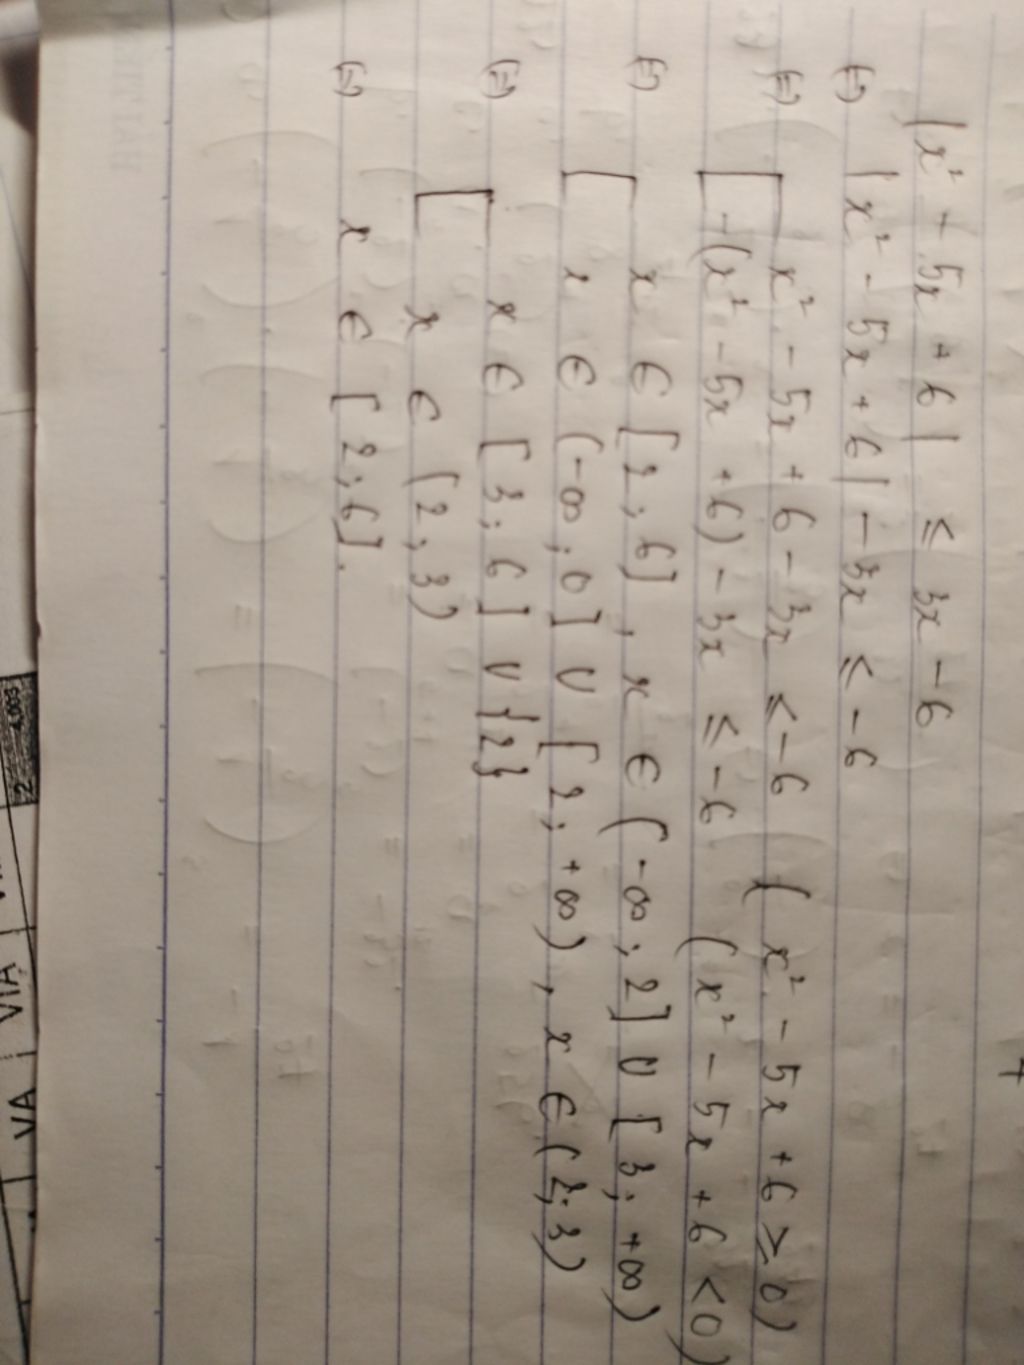 |x² + 5x + 6| ≤ 3x - 6
(=) |x² - 5x + 6| - 3x ≤ -6
(=) [ x² - 5x + 6 - 3x ≤ -6 ( x² - 5x + 6 ≥ 0)
-(x² - 5x + 6) - 3x ≤ -6 ( x² - 5x + 6 < 0)
(=) [ x ∈ [2; 6], x ∈ (-∞; 2] ∪ [3; +∞)
x ∈ (-∞; 0] ∪ [2; +∞), x ∈ (2; 3)
(=) [ x ∈ [3; 6] ∪ {2}
x ∈ (2; 3)
(=) x ∈ [2; 6].
7
4,003
2
VIA
VA